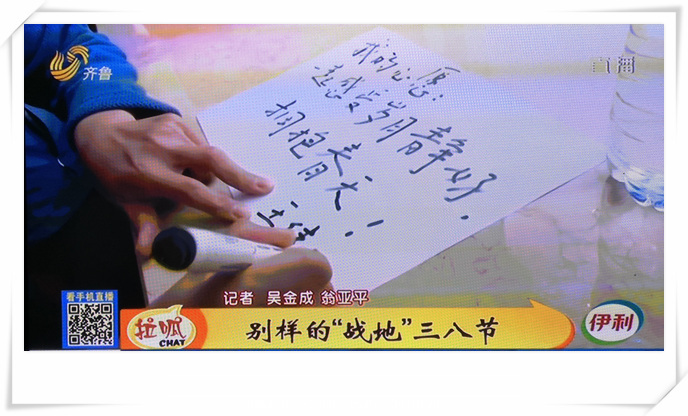 齐鲁
直播
我的心愿：
愿岁月静好，
拥抱春天！
看手机直播
记者 吴金成 翁亚平
拉呱
CHAT
别样的“战地”三八节
伊利